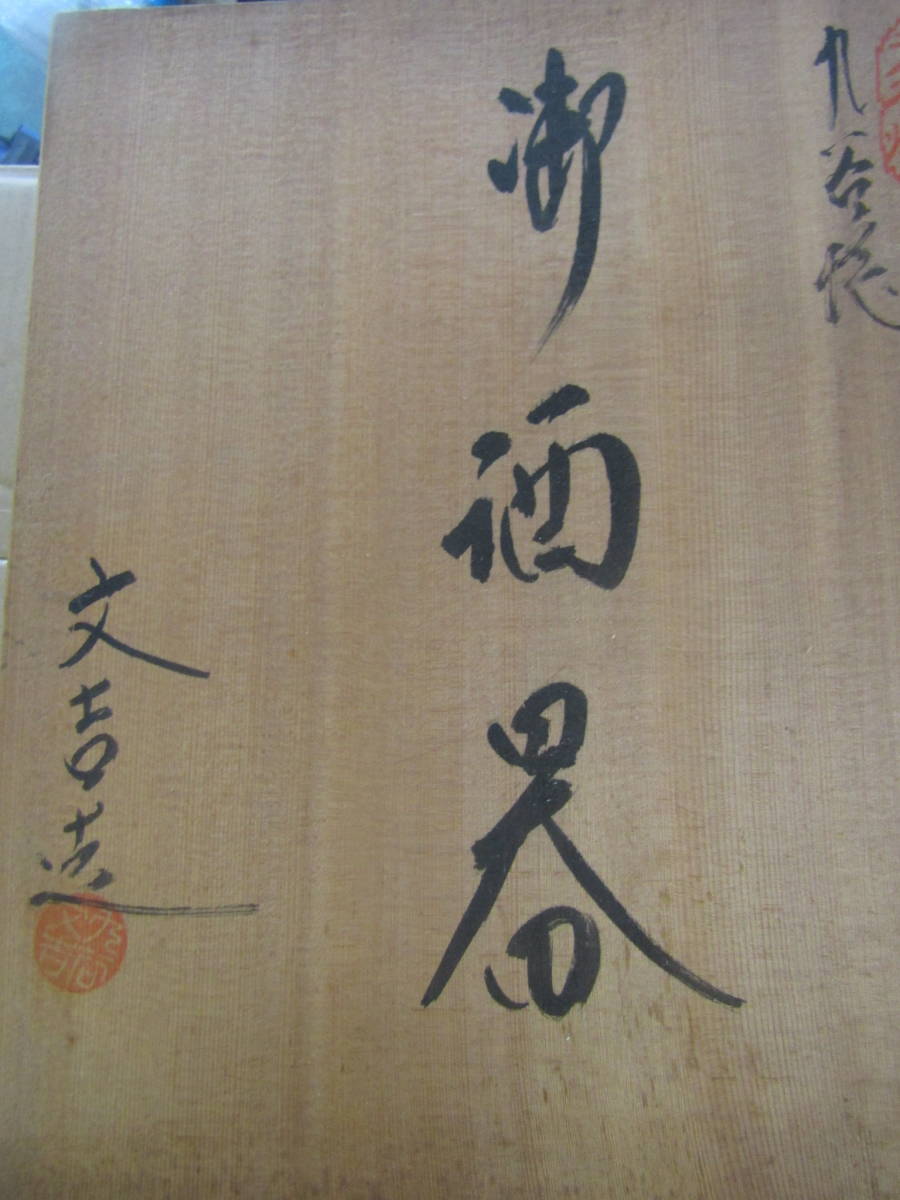 九谷
御酒器
文吉造